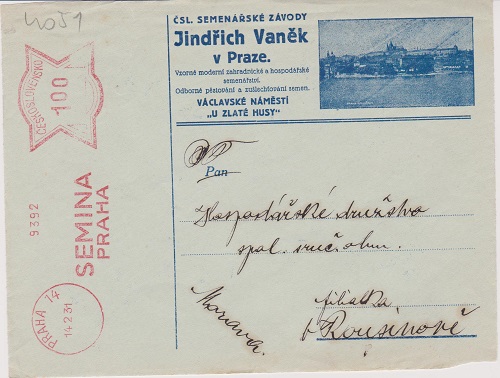 4051
ČSL. SEMENÁŘSKÉ ZÁVODY
Jindřich Vaněk
v Praze.
Vzorné moderní zahradnické a hospodářské
semenářství.
Odborné pěstování a zušlechťování semen.
VÁCLAVSKÉ NÁMĚSTÍ
„U ZLATÉ HUSY"
ČESKOSLOVENSKO
100
9392
SEMINA
PRAHA
PRAHA 14
14.2.31
Pan
Hospodářské družstvo
spol. s ruč. obm.
filiálka
Morava.
v Rousínově